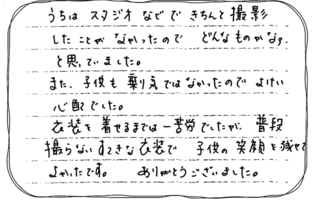 うちは スタジオ などで きちんと撮影
したことが なかったので どんなものかなぁ
と思っていました。
また、子供も 乗り気ではなかったので よけい
心配でした。
衣装を着せるまでは一苦労でしたが、普段
撮らないすてきな衣装で 子供の笑顔を残せて
よかったです。 ありがとうございました。